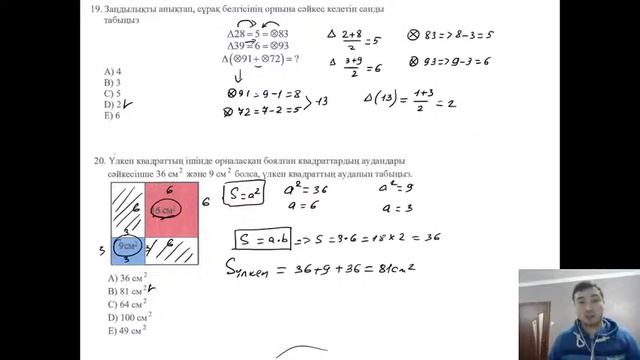 19. Заңдылықты анықтап, сұрақ белгісінің орнына сәйкес келетін санды
табыңыз
Δ28 = 5 = ⊗83
Δ39 = 6 = ⊗93
Δ(⊗91 + ⊗72) = ?
A) 4
B) 3
C) 5
D) 2
E) 6
Δ (2+8)/2 = 5
Δ (3+9)/2 = 6
⊗ 83 => 8-3 = 5
⊗ 93 => 9-3 = 6
⊗91 = 9-1 = 8
⊗72 = 7-2 = 5
13
Δ(13) = (1+3)/2 = 2
20. Үлкен квадраттың ішінде орналасқан боялған квадраттардың аудандары
сәйкесінше 36 см² және 9 см² болса, үлкен квадраттың ауданын табыңыз.
6 6
36 см² 6
3 6
3 9 см² 3
S = a²
a² = 36
a = 6
a² = 9
a = 3
S = a·b => S = 3·6 = 18 × 2 = 36
Sүлкен = 36+9+36 = 81 см²
A) 36 см²
B) 81 см²
C) 64 см²
D) 100 см²
E) 49 см²